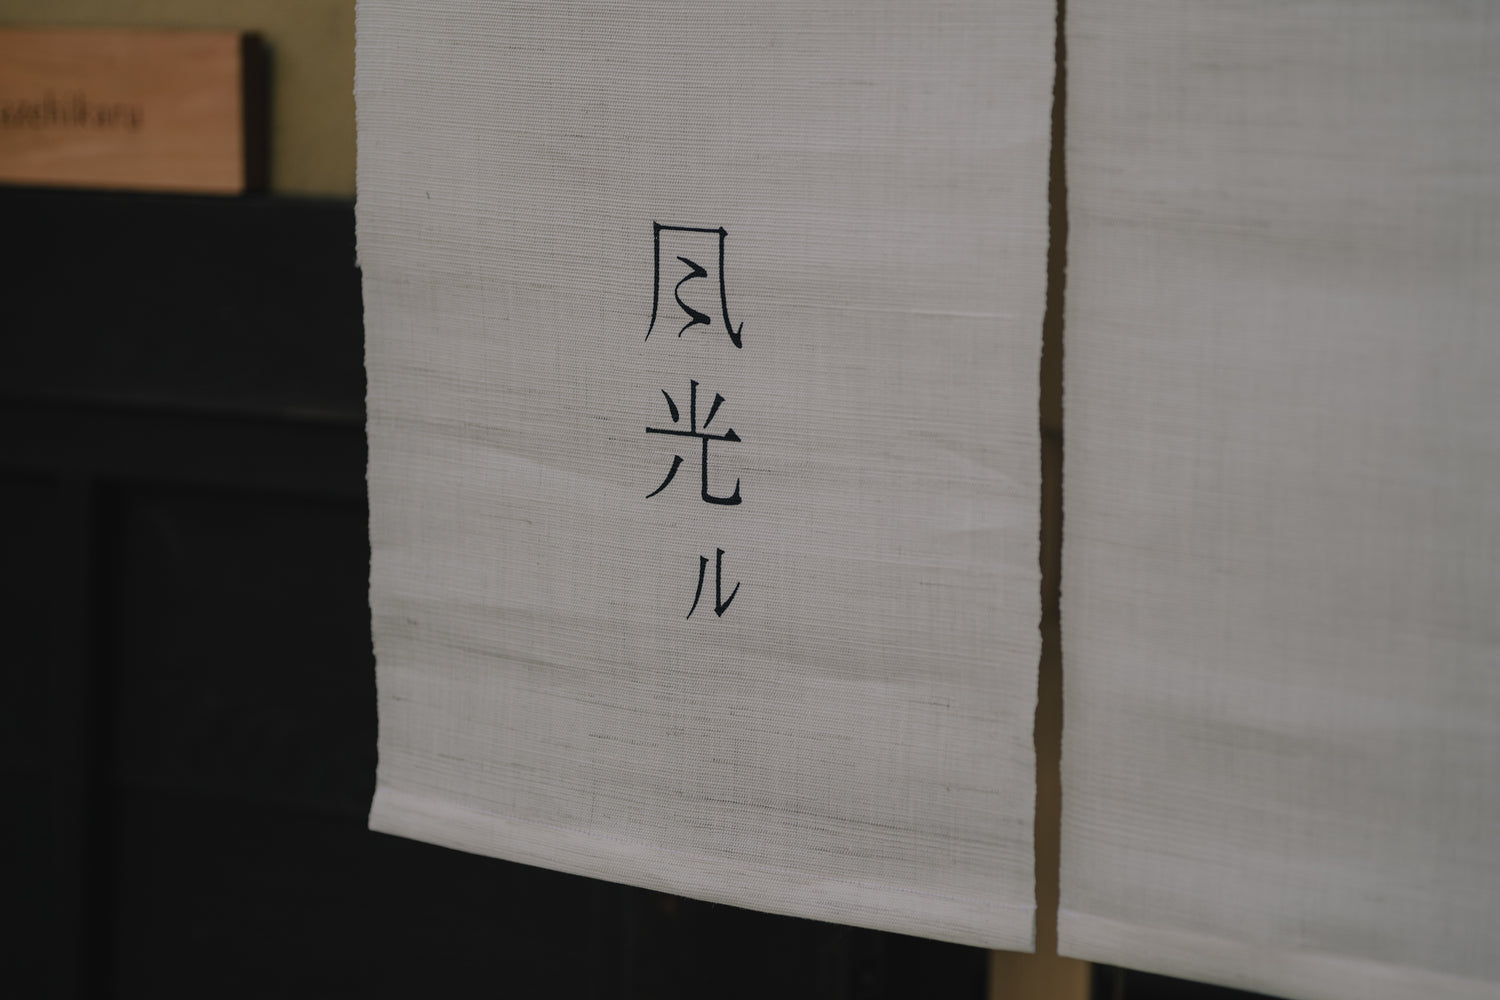 azehikaru
风光ル